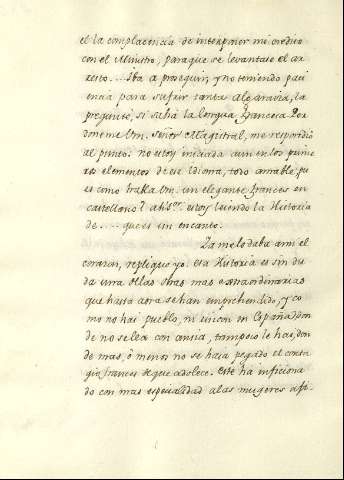 el la complacencia de interponer mi credito
con el Ministro, para que se levantase el ar
resto.... Iba a proseguir, y no teniendo paci
encia para sufrir tanta algaravia, la
pregunté, si sabia la Lengua Francesa? Per
doneme Vm. Señor Magistral, me respondió
al punto. No estoy iniciada aun en los prime
ros elementos de ese idioma, todo amable, pu
es como trata Vm. un elegante frances en
castellano? ah Sor. estoy leiendo la Historia
de .... que es un encanto.
Ya me lo daba a mi el
corazon, replique yo: esa Historia es sin du
da una de las obras mas extraordinarias
que hasta aora se han emprehendido, y co
mo no hai pueblo, ni rincon en España, don
de no se lea con ansia, tampoco le hai, don
de mas, ó menos no se haia pegado el conta
gio frances de que adolece. Este há inficiona
do con mas especialidad a las mugeres afi-